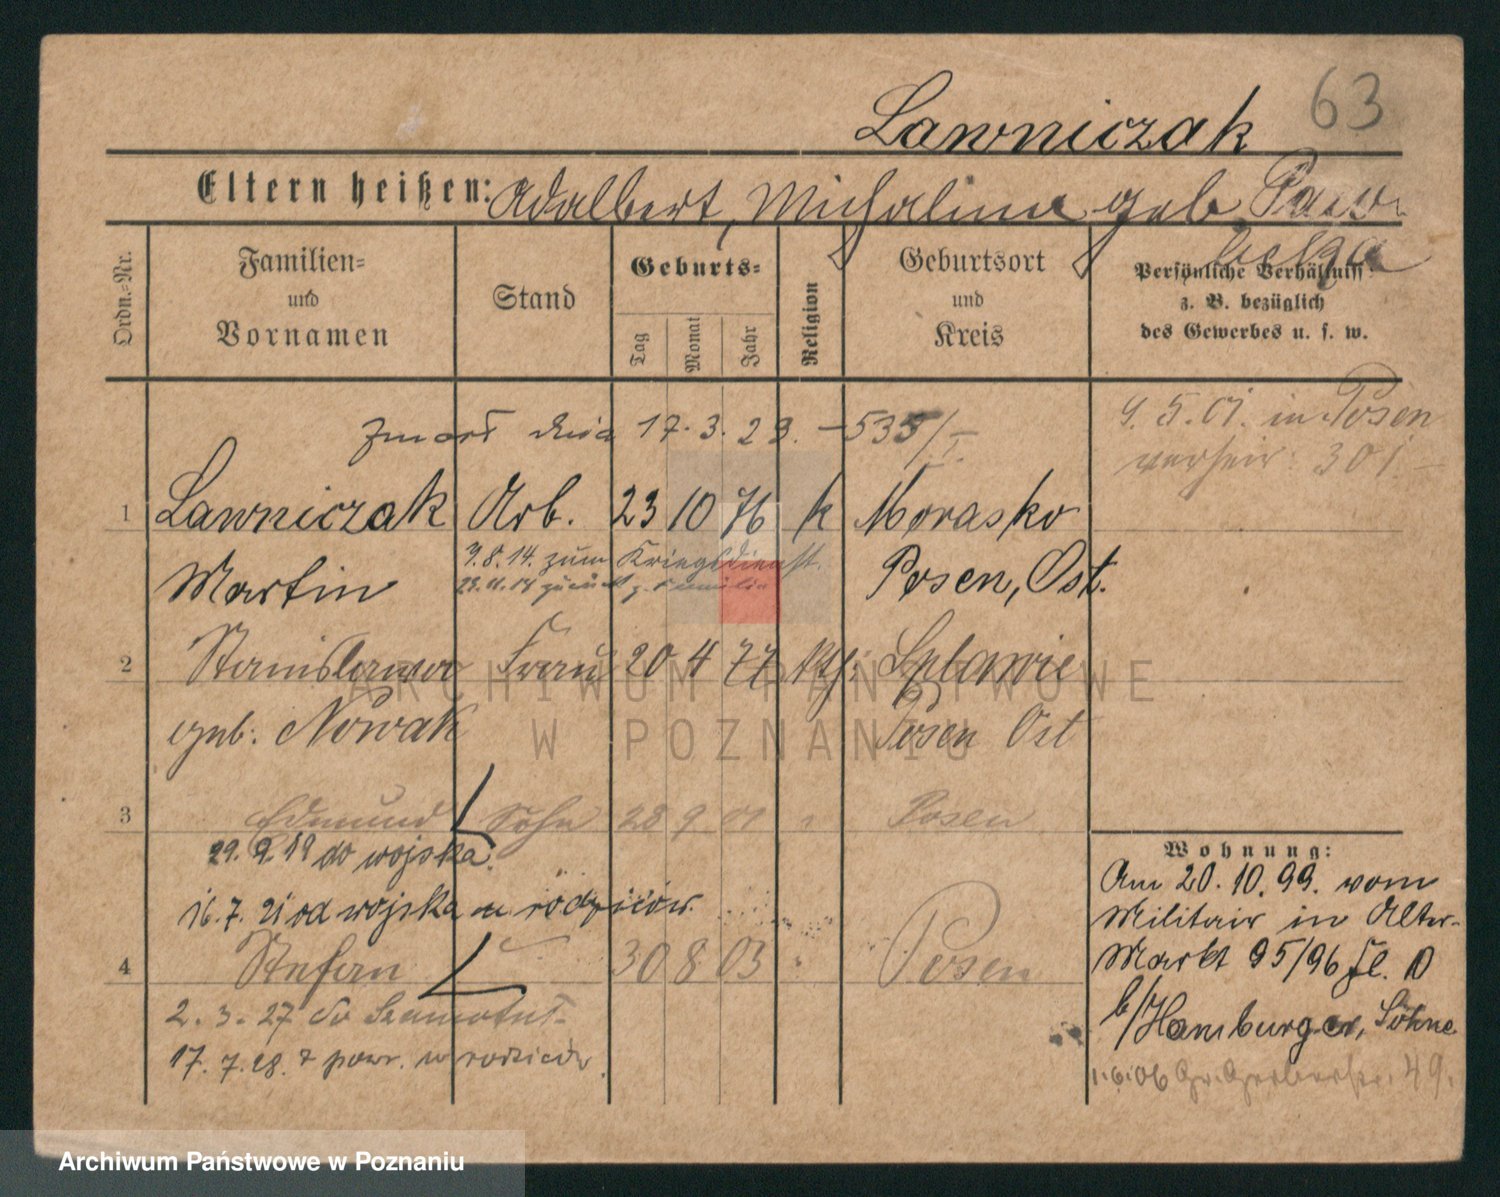 63
Lawniczak
Eltern heißen: Adalbert, Michalina geb Paw-
Ordn.-Nr.
Familien-
und
Vornamen
Stand
Geburts-
Tag
Monat
Jahr
Religion
Geburtsort
und
Kreis
Persönliche Verhältniss-
z. B. bezüglich
des Gewerbes u. s. w.
zmarł dnia 17. 3. 23. – 535/I.
in Posen
verheir: 301 –
1 Lawniczak Arb. 23 10 76 k Morasko
Martin Posen, Ost.
8.14. zum Kriegsdienst.
2 Stanislawa Frau 20 4 77 kth. Splawie
geb. Nowak Posen Ost
3 Edmund Sohn 28 9 01 " Posen
29. 9. 19 do wojska.
16. 7. 21 od wojska u rodziców.
4 Stefan " 30 8 03 " Posen
2. 3. 27 do
17. 7. 28. powr. w rodziców.
Wohnung:
Am 20. 10. 99. vom
Militair in Alter-
Markt 95/96 fl. D
b/Hamburger, Söhne
1.6.06 Gr. Gerberstr. 49.
ARCHIWUM PAŃSTWOWE
W POZNANIU
Archiwum Państwowe w Poznaniu